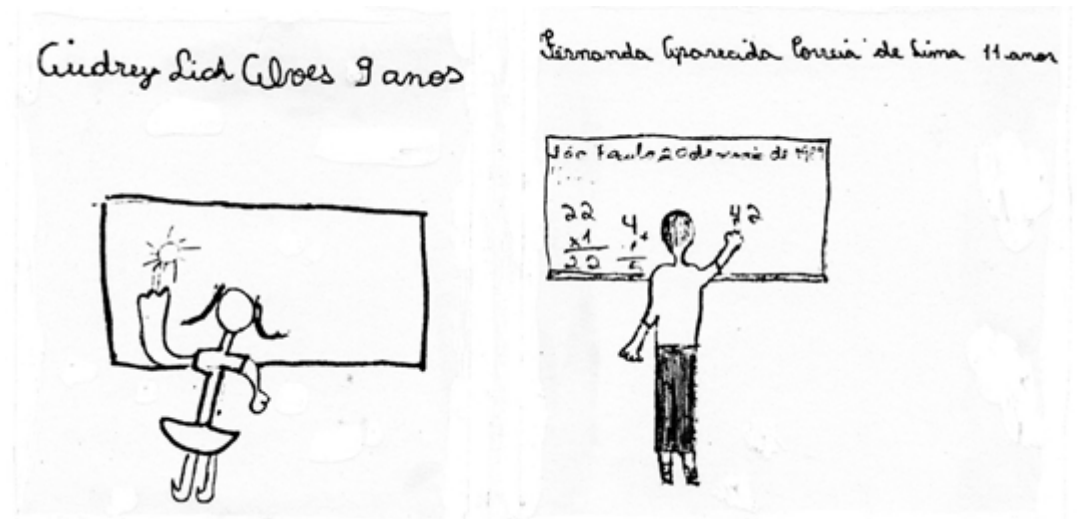 Audrey Lich Alves 9 anos
Fernanda Aparecida Correia de Lima 11 anos
São Paulo 20 de de
22
x1
22
4
5
42